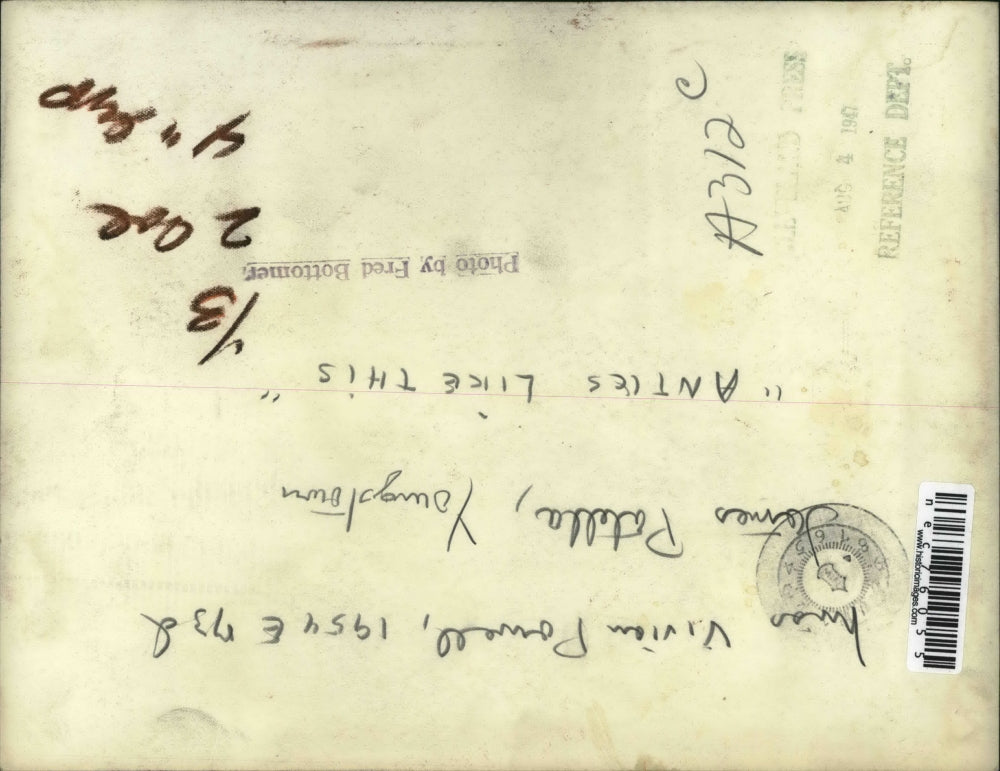 Miss Vivian Powell, 1954 E 73d
James Patella, Youngstown
"ANTIES LIKE THIS"
Photo by Fred Bottomer,
1/3
2 Col
4"
A312 C
AUG 4 1947
REFERENCE DEPT.
nec76055
www.historicimages.com